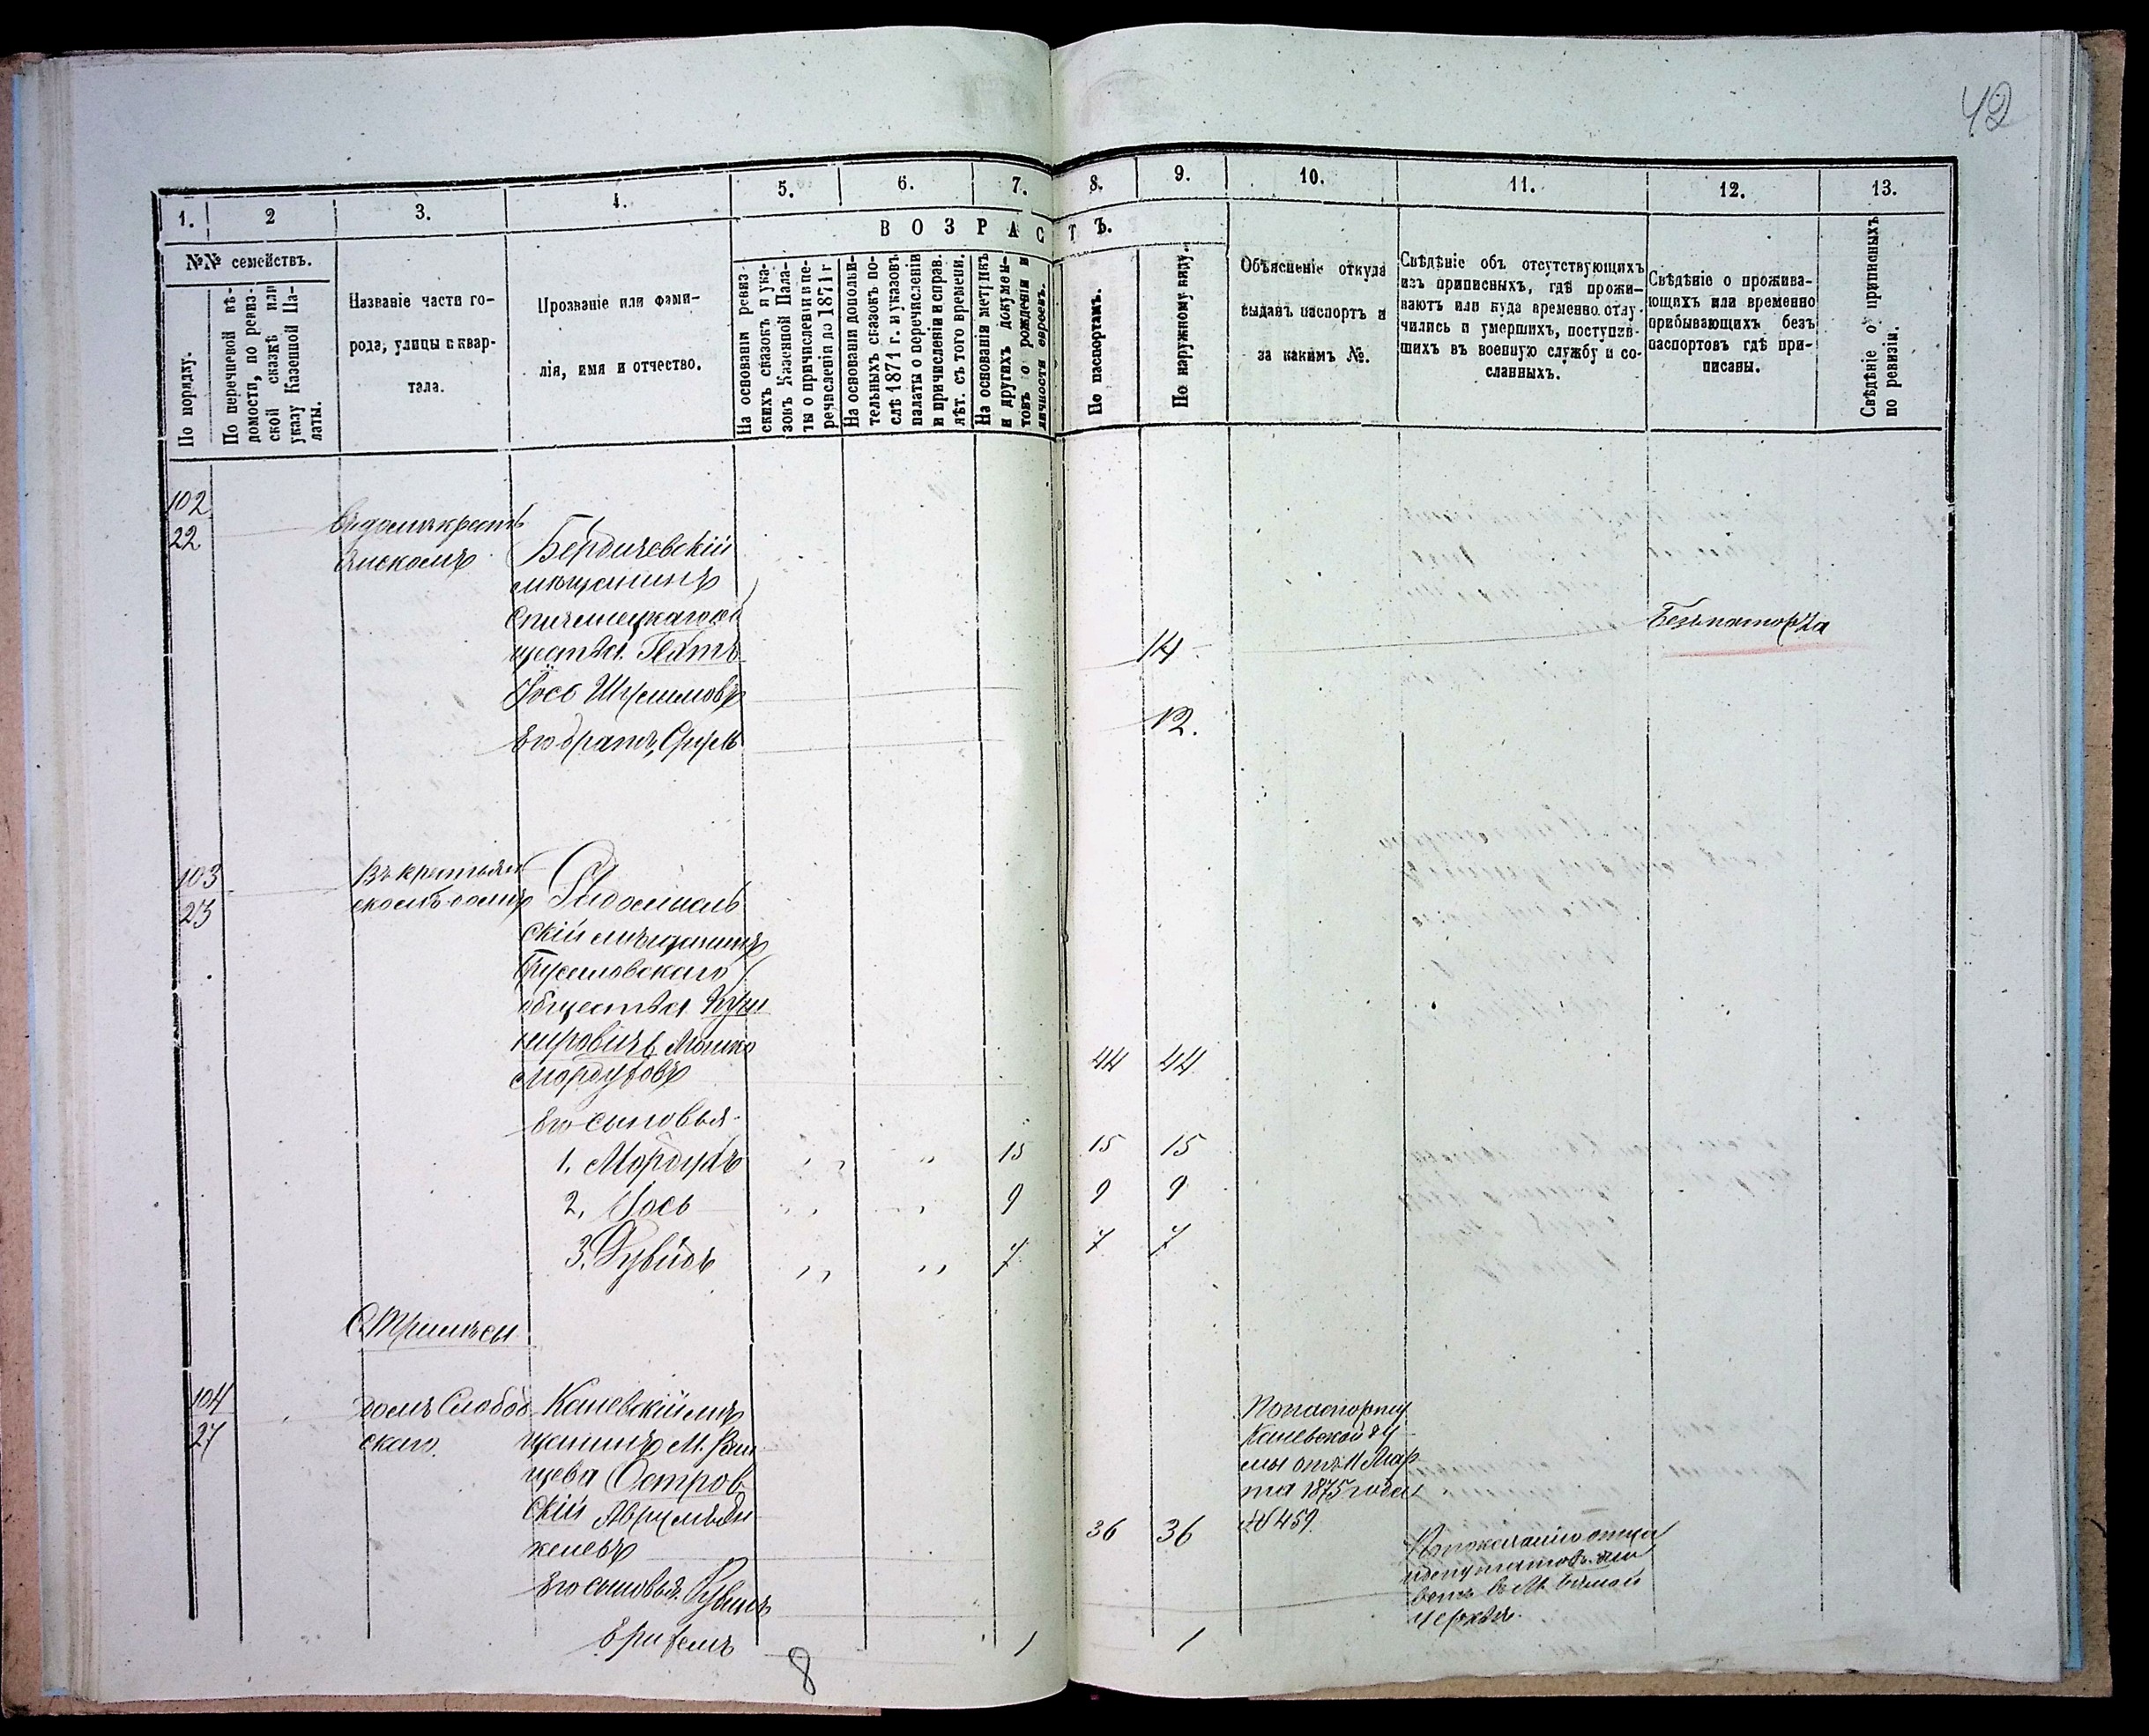 42
1.
2
3.
4.
5.
6.
7.
8.
9.
10.
11.
12.
13.
ВОЗРАСТЪ.
№№ семействъ.
По порядку.
По перечневой вѣ-
домости, по ревиз-
ской сказкѣ или
указу Казенной Па-
латы.
Названіе части го-
рода, улицы и квар-
тала.
Прозваніе или фами-
лія, имя и отчество.
На основаніи ревиз-
скихъ сказокъ и ука-
зовъ Казенной Пала-
ты о причисленіи и пе-
речисленіи до 1871 г
На основаніи дополни-
тельныхъ сказокъ по-
слѣ 1871 г. и указовъ
палаты о перечисленіи
и причисленіи и справ.
лѣт. съ того времени.
На основаніи метрикъ
и другихъ докумен-
товъ о рожденіи и
личности евреевъ.
По паспортамъ.
По наружному виду.
Объясненіе откуда
выданъ паспортъ и
за какимъ №.
Свѣдѣніе объ отсутствующихъ
изъ приписныхъ, гдѣ прожи-
ваютъ или куда временно отлу-
чились и умершихъ, поступив-
шихъ въ военную службу и со-
сланныхъ.
Свѣдѣніе о прожива-
ющихъ или временно
прибывающихъ безъ
паспортовъ гдѣ при-
писаны.
Свѣдѣніе о приписныхъ
по ревизіи.
102
22
Бердичевскій
мѣщанинъ
щества
Іось
14
Безъ паспорта
Его братъ Сруль
12.
103
23
Въ крестьян
скомъ домѣ
Радомысль
скій мѣщанинъ
общества Куш
нировичъ Мошко
Мордуховъ
44 44
Его сыновья
1. Мордухъ " " 15 15 15
2. Іось " " 9 9 9
3. " " 7 7 7
104
27
домъ Слобод
скаго
Каневскій мѣ
щанинъ М.
Остров
скій
По паспорту
Каневской Ду
мы отъ 11 Мар
та 1875 года
№ 459.
36 36
Его сыновья.
По показанію отца
1 1
8